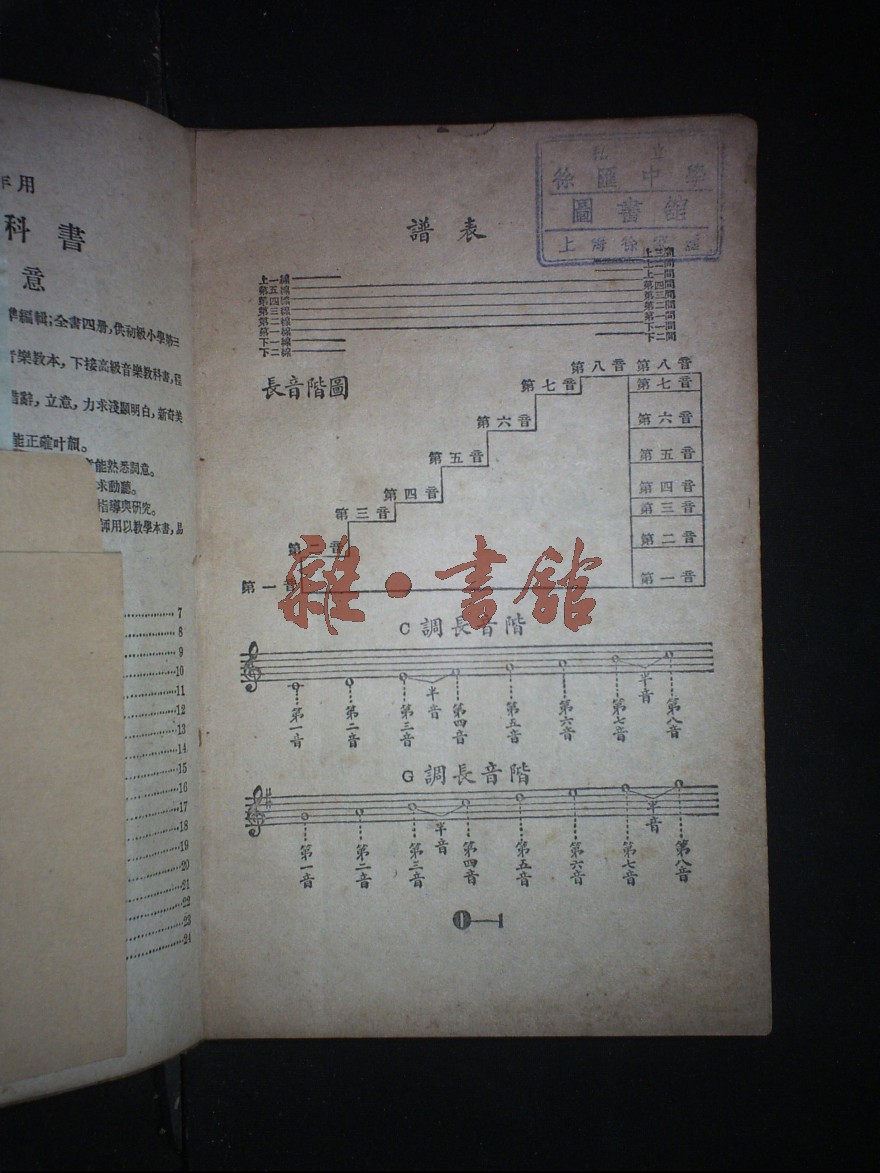 年用
科書
意
準編輯;全書四册,供初級小學第三
音樂教本,下接高級音樂教科書,程
措辭,立意,力求淺顯明白,新奇美
能正確叶韻。
能熟悉詞意。
求動聽。
指導與研究。
師用以教學本書,品
7
8
9
10
11
12
13
14
15
16
17
18
19
20
21
22
23
24
私立
徐匯中學
圖書館
上海徐家匯
譜表
上一線
第五線
第四線
第三線
第二線
第一線
下一線
下二線
上三間
上二間
上一間
第四間
第三間
第二間
第一間
下一間
下二間
長音階圖
第八音 第八音
第七音 第七音
第六音 第六音
第五音 第五音
第四音 第四音
第三音 第三音
第二音 第二音
第一音 第一音
雜·書館
C調長音階
第一音 第二音 第三音 半音 第四音 第五音 第六音 第七音 半音 第八音
G調長音階
第一音 第二音 第三音 半音 第四音 第五音 第六音 第七音 半音 第八音
0—1